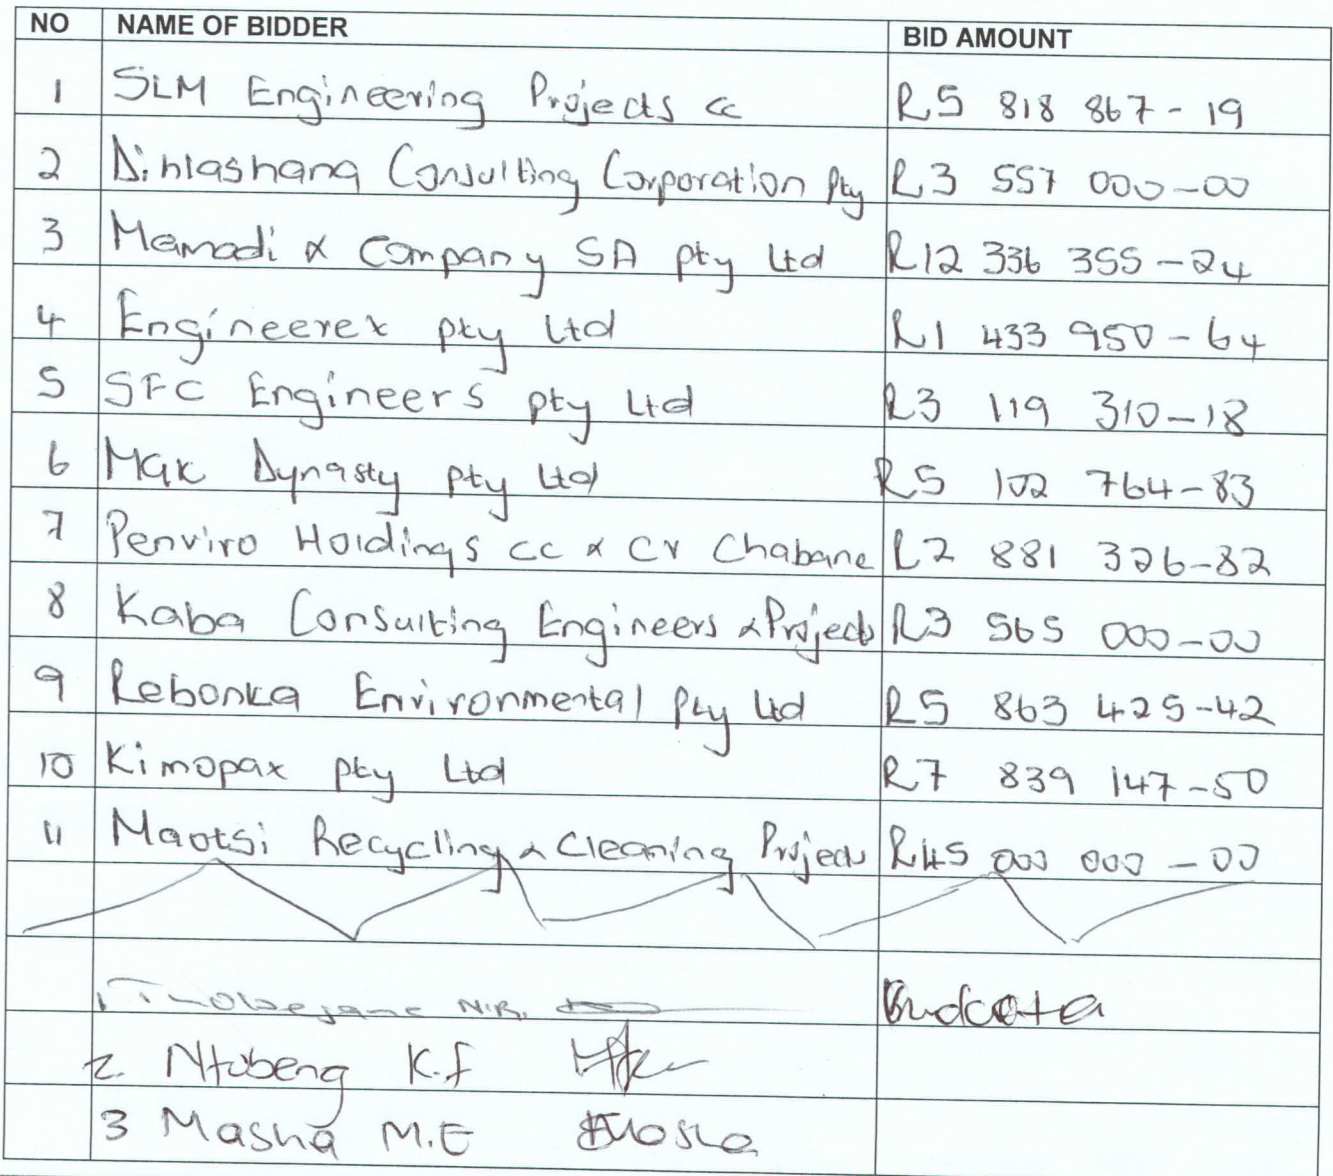 NO NAME OF BIDDER BID AMOUNT
1 SLM Engineering Projects cc R5 818 867-19
2 Dihlashana Consulting Corporation Pty R3 557 000-00
3 Mamadi & Company SA pty Ltd R12 336 355-24
4 Engineerex pty Ltd R1 433 950-64
5 SFC Engineers pty Ltd R3 119 310-18
6 Mak Dynasty pty Ltd R5 102 764-83
7 Penviro Holdings cc & CV Chabane R2 881 326-82
8 Kaba Consulting Engineers & Projects R3 565 000-00
9 Rebonka Environmental Pty Ltd R5 863 425-42
10 Kimopax pty Ltd R7 839 147-50
11 Maotsi Recycling & Cleaning Projects R45 000 000-00
1 N.R.
2. Ntobeng K.f
3 Masha M.E